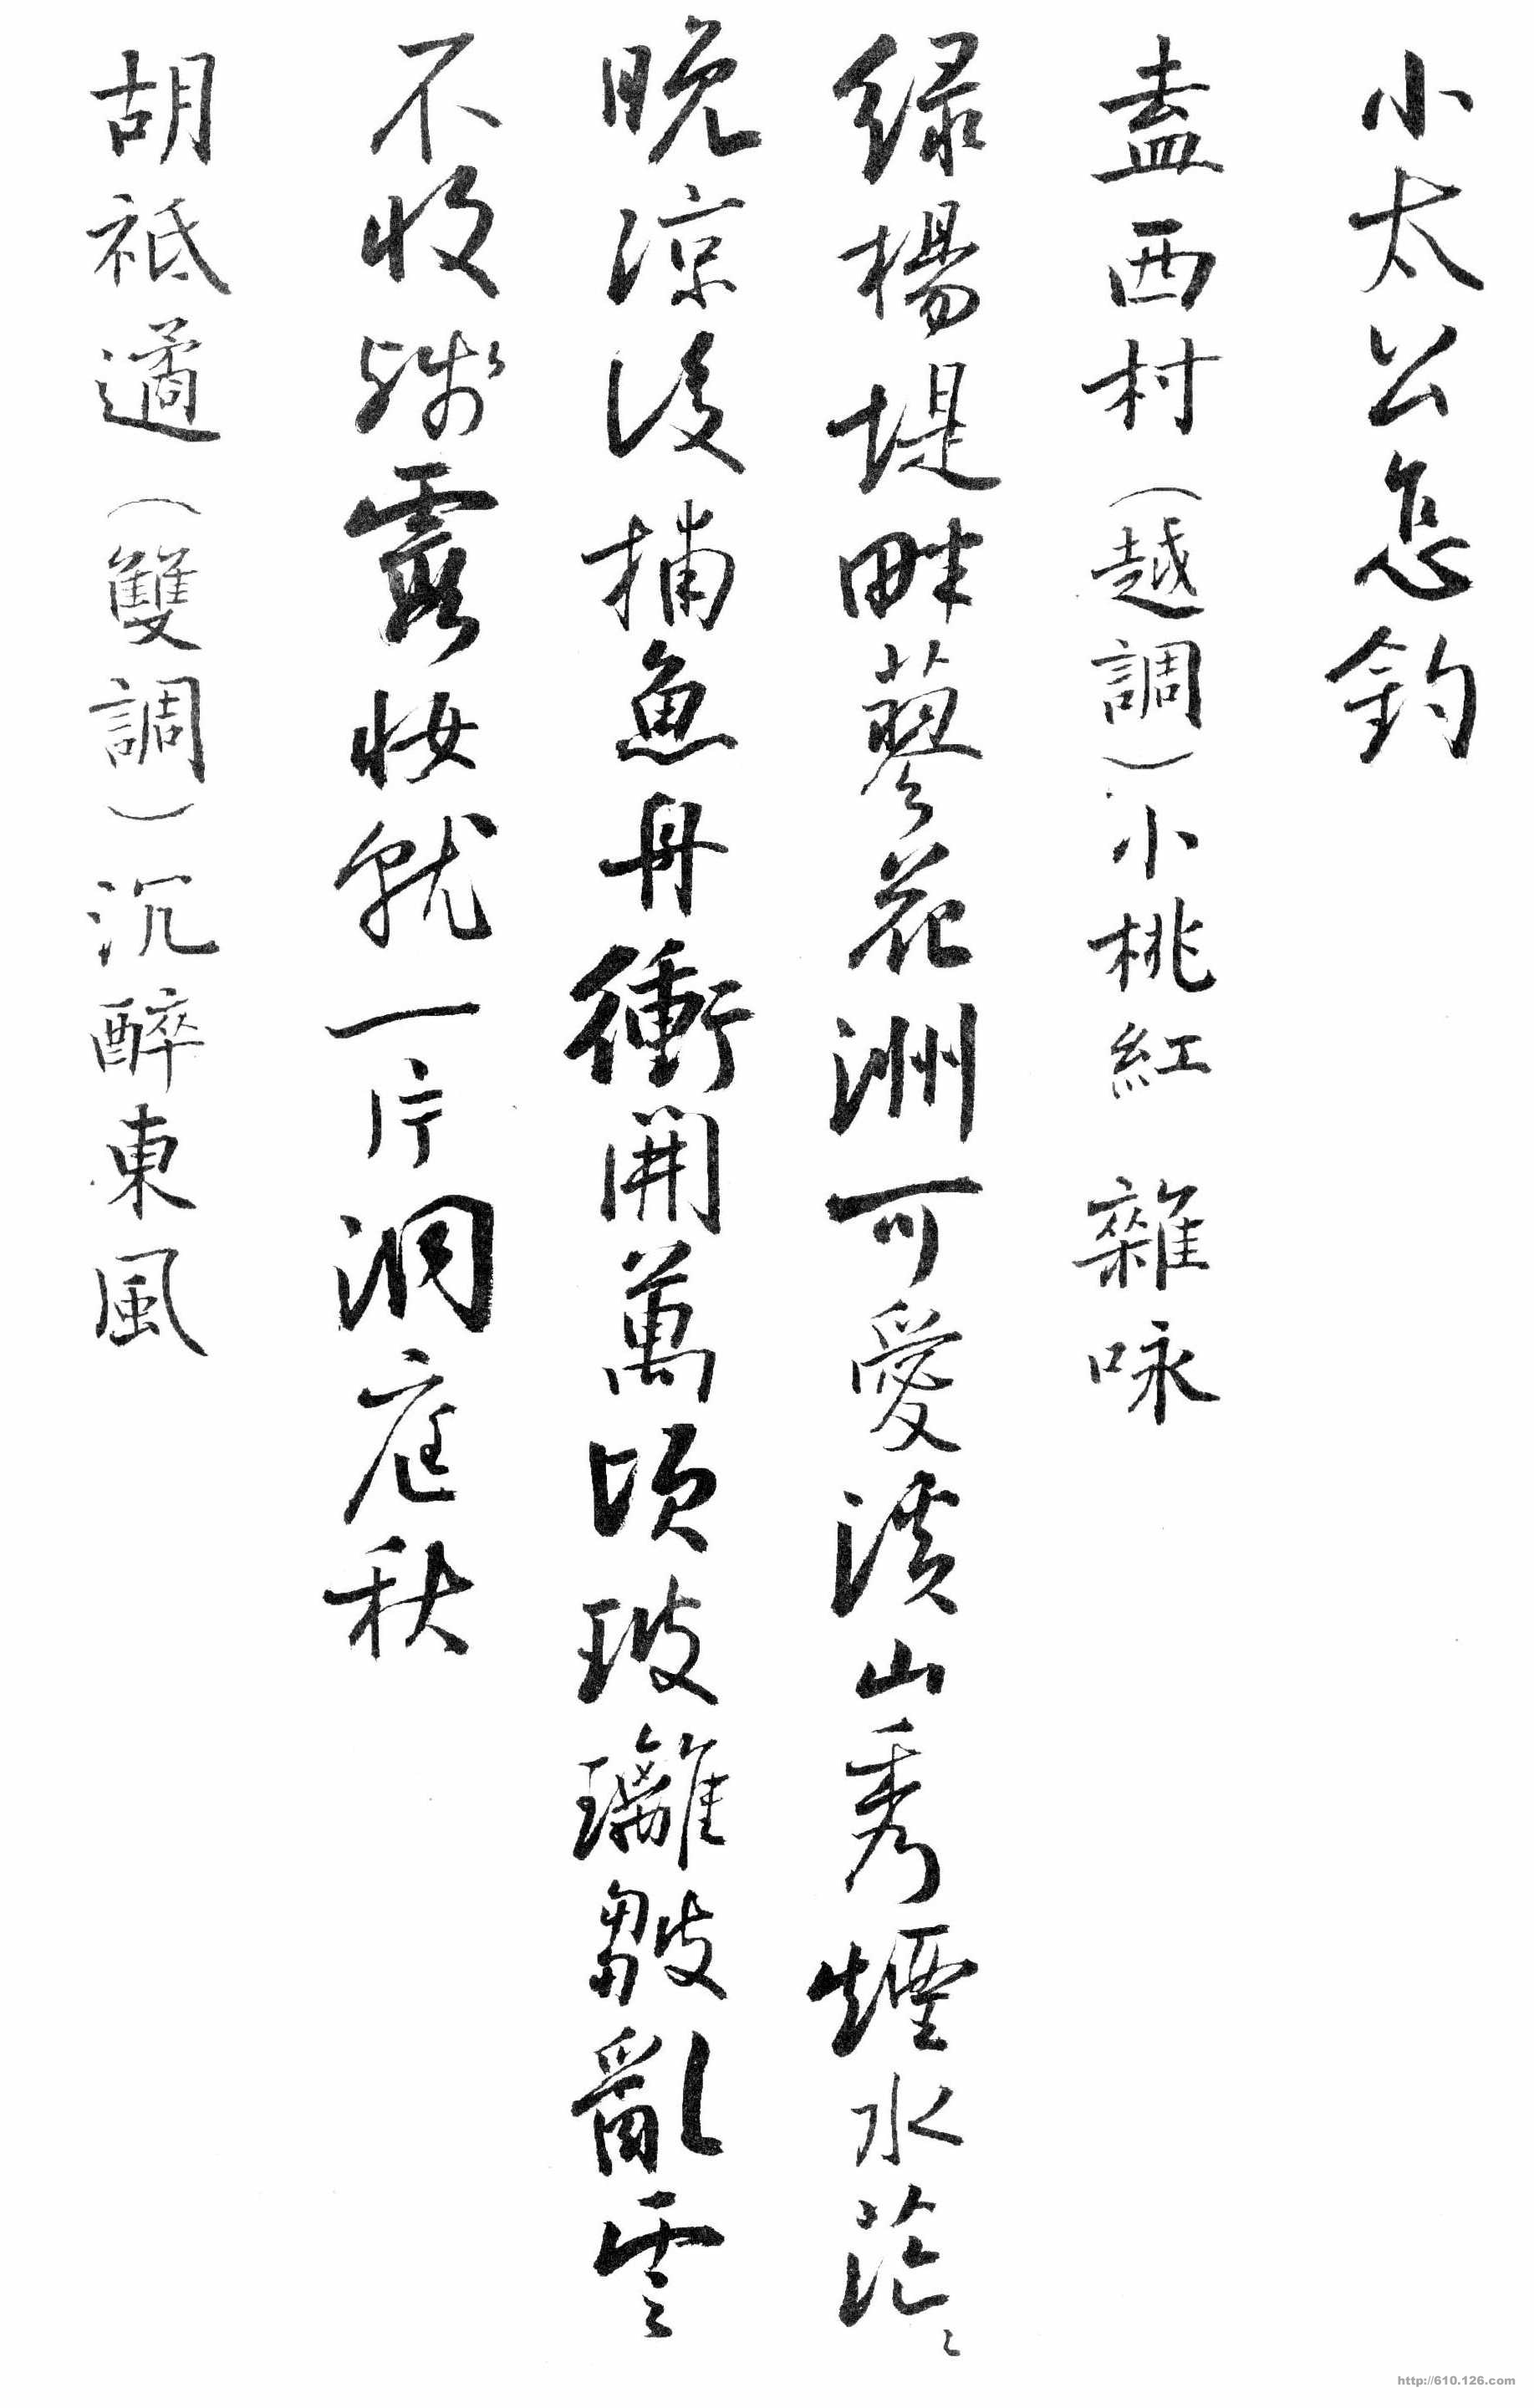 小太公怎釣
盍西村（越調）小桃紅　雜咏
綠楊堤畔蓼花洲可愛溪山秀煙水茫〻
晚涼後捕魚舟衝開萬頃玻瓈皺亂雲
不收殘霞妝就一片洞庭秋
胡祗遹（雙調）沉醉東風
http://610.126.com